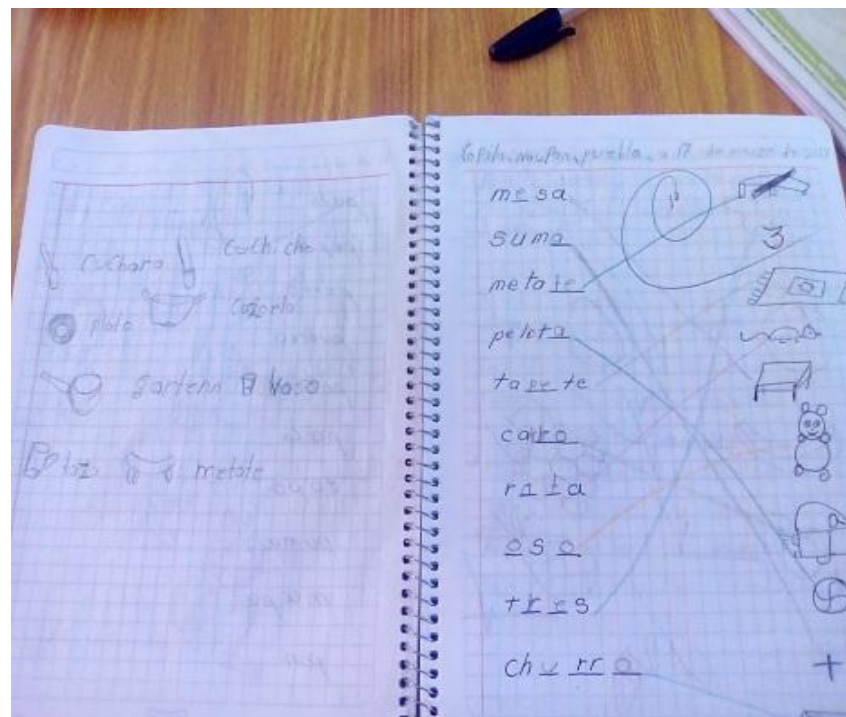 cuchara cuchicho
plato cazoela
sartenn vaso
taz metate
puebla, a 17 de marzo de
mesa
suma 3
metate
pelota
tapete
carro
rata
oso
tres
churro +